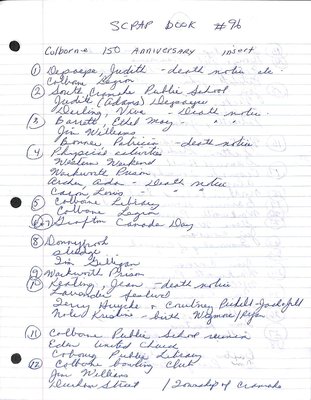 SCRAP BOOK #96
Colborne 150 ANNIVERSARY insert
① Depaepe, Judith - death notice etc -
Colborne Legion
② South Cramahe Public School
Judith (Adams) Depaepe
Derling, Vive - Death notice -
③ Barrett, Ethel May - " "
Jim Williams
Bonner Patricia - death notice
④ Physics activities
Western Weekend
Warkworth Prison
Archer Ada - Death notice
Caron Lewis " "
⑤ Colborne Library
⑥ Colborne Legion
Grafton Canada Day
⑧ Donnybrook
Sludge
Jim Gilligan
⑨ Warkworth Prison
⑩ Keating, Jean - death notice
Lavender feature
Terry Huycke & Courtney
Noble Kristine - birth
⑪ Colborne Public School reunion
Eden United Church
Cobourg Public Library
⑫ Colborne bowling club
Jim Williams
Durham Street / Township of Cramahe